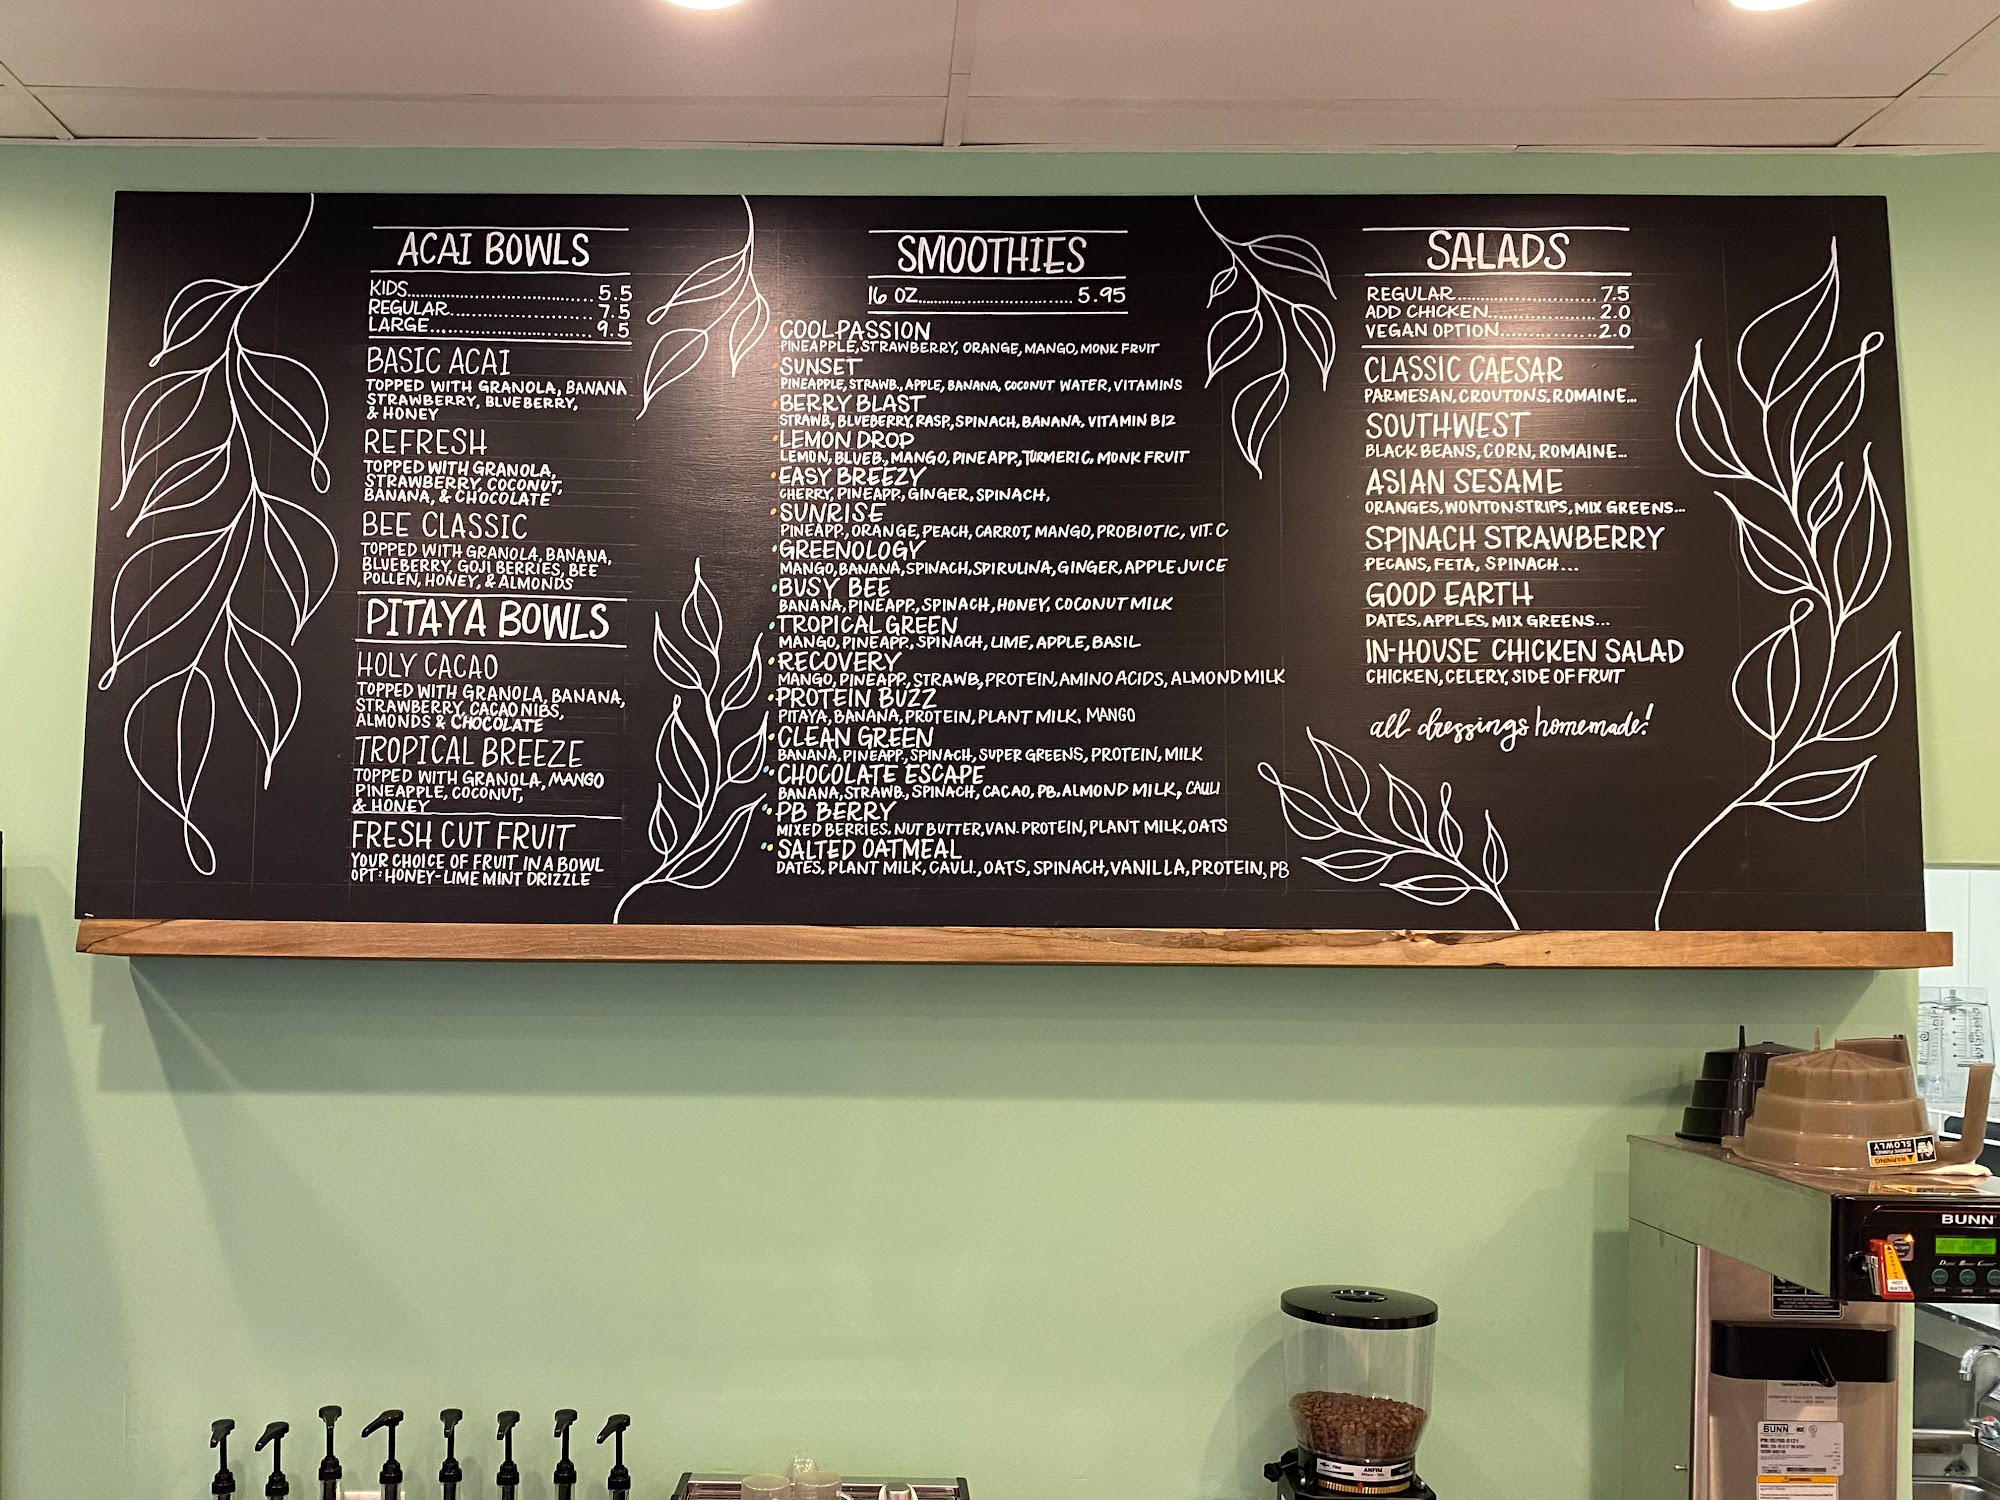 ACAI BOWLS
KIDS 5.5
REGULAR 7.5
LARGE 9.5
BASIC ACAI
TOPPED WITH GRANOLA, BANANA
STRAWBERRY, BLUEBERRY,
& HONEY
REFRESH
TOPPED WITH GRANOLA,
STRAWBERRY, COCONUT,
BANANA, & CHOCOLATE
BEE CLASSIC
TOPPED WITH GRANOLA, BANANA,
BLUEBERRY, GOJI BERRIES, BEE
POLLEN, HONEY, & ALMONDS
PITAYA BOWLS
HOLY CACAO
TOPPED WITH GRANOLA, BANANA,
STRAWBERRY, CACAO NIBS,
ALMONDS & CHOCOLATE
TROPICAL BREEZE
TOPPED WITH GRANOLA, MANGO
PINEAPPLE, COCONUT,
& HONEY
FRESH CUT FRUIT
YOUR CHOICE OF FRUIT IN A BOWL
OPT: HONEY-LIME MINT DRIZZLE
SMOOTHIES
16 OZ 5.95
COOL PASSION
PINEAPPLE, STRAWBERRY, ORANGE, MANGO, MONK FRUIT
SUNSET
PINEAPPLE, STRAWB., APPLE, BANANA, COCONUT WATER, VITAMINS
BERRY BLAST
STRAWB, BLUEBERRY, RASP., SPINACH, BANANA, VITAMIN B12
LEMON DROP
LEMON, BLUEB., MANGO, PINEAPP., TURMERIC, MONK FRUIT
EASY BREEZY
CHERRY, PINEAPP., GINGER, SPINACH,
SUNRISE
PINEAPP., ORANGE, PEACH, CARROT, MANGO, PROBIOTIC, VIT. C
GREENOLOGY
MANGO, BANANA, SPINACH, SPIRULINA, GINGER, APPLE JUICE
BUSY BEE
BANANA, PINEAPP., SPINACH, HONEY, COCONUT MILK
TROPICAL GREEN
MANGO, PINEAPP., SPINACH, LIME, APPLE, BASIL
RECOVERY
MANGO, PINEAPP., STRAWB., PROTEIN, AMINO ACIDS, ALMOND MILK
PROTEIN BUZZ
PITAYA, BANANA, PROTEIN, PLANT MILK, MANGO
CLEAN GREEN
BANANA, PINEAPP., SPINACH, SUPER GREENS, PROTEIN, MILK
CHOCOLATE ESCAPE
BANANA, STRAWB., SPINACH, CACAO, PB, ALMOND MILK, CAULI
PB BERRY
MIXED BERRIES, NUT BUTTER, VAN. PROTEIN, PLANT MILK, OATS
SALTED OATMEAL
DATES, PLANT MILK, CAULI., OATS, SPINACH, VANILLA, PROTEIN, PB
SALADS
REGULAR 7.5
ADD CHICKEN 2.0
VEGAN OPTION 2.0
CLASSIC CAESAR
PARMESAN, CROUTONS, ROMAINE...
SOUTHWEST
BLACK BEANS, CORN, ROMAINE...
ASIAN SESAME
ORANGES, WONTON STRIPS, MIX GREENS...
SPINACH STRAWBERRY
PECANS, FETA, SPINACH...
GOOD EARTH
DATES, APPLES, MIX GREENS...
IN-HOUSE CHICKEN SALAD
CHICKEN, CELERY, SIDE OF FRUIT
all dressings homemade!
WARNING
SLOWLY
BUNN
HOT WATER
BUNN
ANFIM